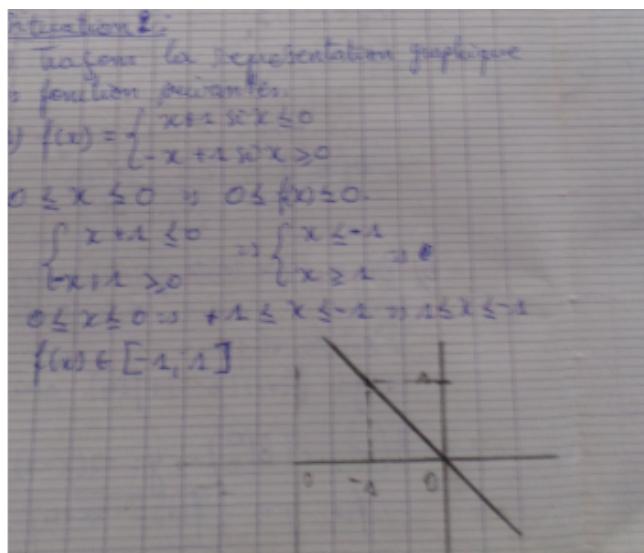 Situation 2:
Traçons la représentation graphique
fonction suivantes.
) f(x) = { x+1 si x ≤ 0
-x+1 si x ≥ 0
0 ≤ x ≤ 0 => 0 ≤ f(x) ≤ 0.
{ x+1 ≤ 0 => { x ≤ -1
-x+1 ≥ 0 x ≥ 1 =>
0 ≤ x ≤ 0 => +1 ≤ x ≤ -1 => 1 ≤ x ≤ -1
f(x) ∈ [-1, 1]
1
0 -1 0